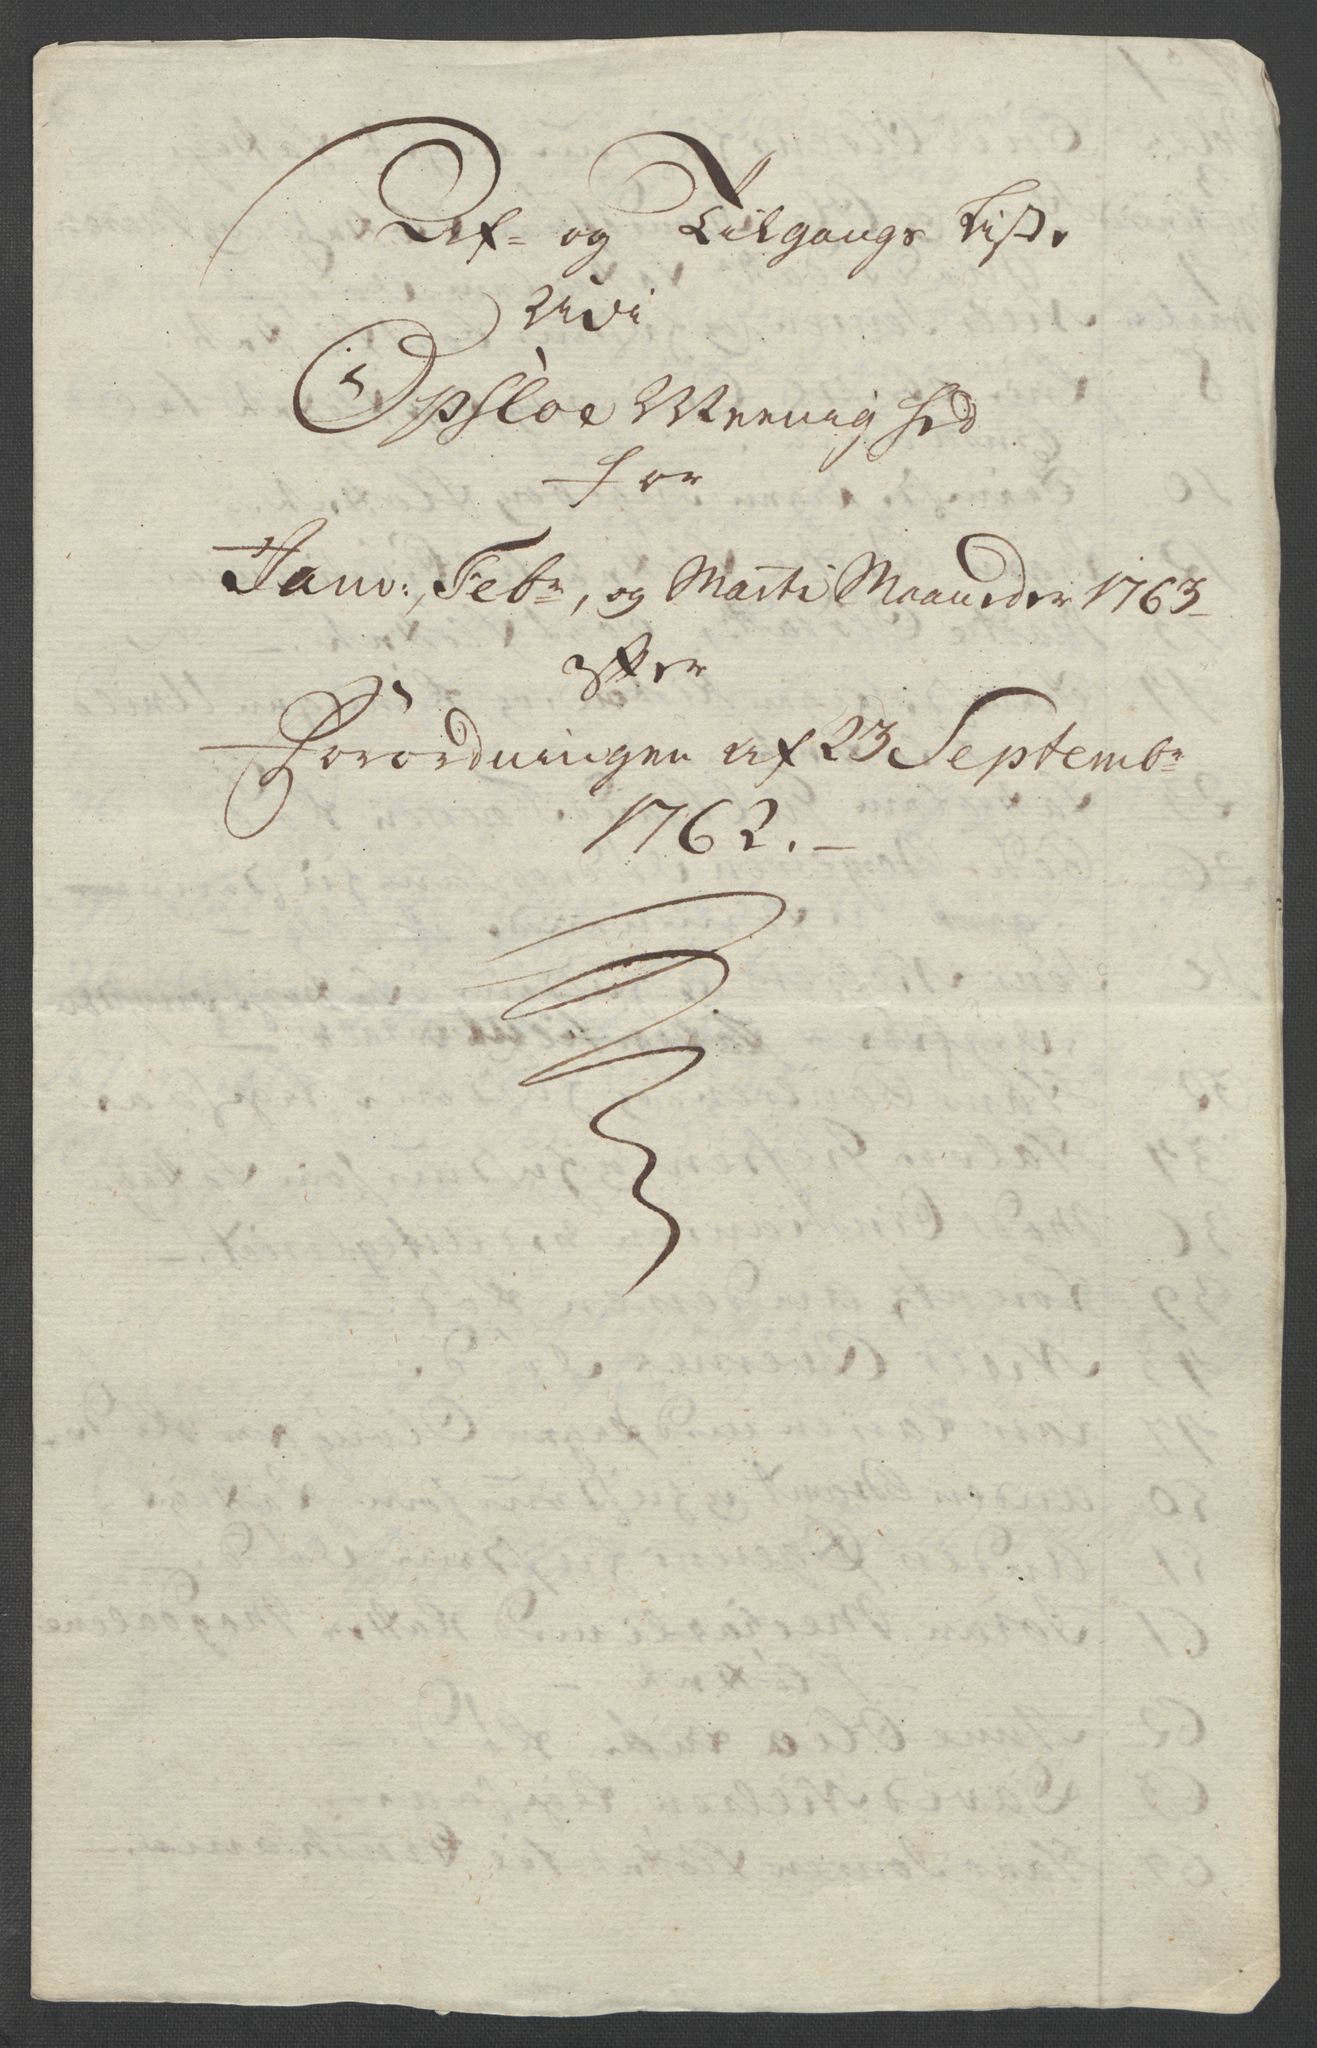 Af- og Tilgangs Liste
Udi
Opsloe Meenighed
for
Janv:, Febr, og Marti Maaneder 1763
efter
Forordningen af 23 Septembr
1762.